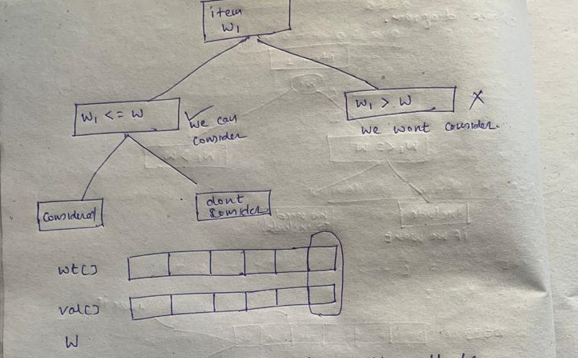 item
W1
W1 <= W
W1 > W
we can
consider
we wont consider.
Considered
dont
consider
wt[]
val[]
W